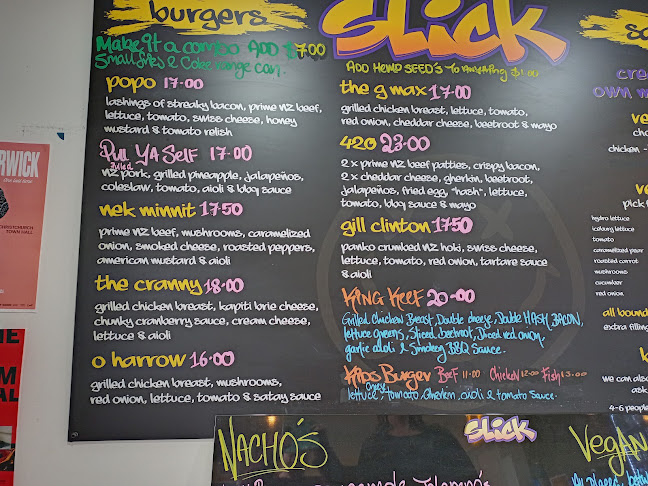 burgers
Make it a combo ADD $7.00
Small fries & Coke range can.
popo 17.00
lashings of streaky bacon, prime nz beef,
lettuce, tomato, swiss cheese, honey
mustard & tomato relish
Pull Ya Self 17.00
Pulled
nz pork, grilled pineapple, jalapeños,
coleslaw, tomato, aioli & bbq sauce
nek minnit 17.50
prime nz beef, mushrooms, caramelized
onion, smoked cheese, roasted peppers,
american mustard & aioli
the cranny 18.00
grilled chicken breast, kapiti brie cheese,
chunky cranberry sauce, cream cheese,
lettuce & aioli
o harrow 16.00
grilled chicken breast, mushrooms,
red onion, lettuce, tomato & satay sauce
SLICK
ADD HEMP SEED'S TO ANYTHING $1.00
the g max 17.00
grilled chicken breast, lettuce, tomato,
red onion, cheddar cheese, beetroot & mayo
420 23.00
2 x prime nz beef patties, crispy bacon,
2 x cheddar cheese, gherkin, beetroot,
jalapeños, fried egg, "hash", lettuce,
tomato, bbq sauce & mayo
gill clinton 17.50
panko crumbed nz hoki, swiss cheese,
lettuce, tomato, red onion, tartare sauce
& aioli
KING KEEF 20.00
Grilled Chicken Breast, Double cheese, Double HASH, BACON,
lettuce greens, Sliced Beetroot, Diced red onion,
garlic aioli & Smokey BBQ Sauce.
KIDS BURGER BEEF 11.00 CHICKEN 12.00 FISH 13.00
cheese
lettuce, tomato, Gherkin, aioli & tomato Sauce.
cre
own
ve
cho
chicken -
ve
pick
hydro lettuce
iceburg lettuce
tomato
caramelized pear
roasted carrot
mushrooms
cucumber
red onion
all boun
extra filling
we can also
ask
4-6 people
RWICK
CHRISTCHURCH
TOWN HALL
NACHO'S
SLICK
VEGAN